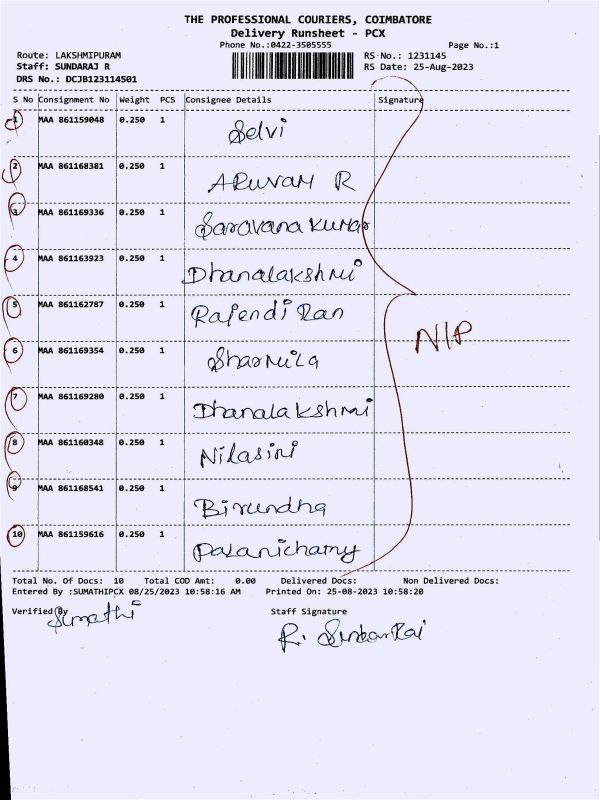 THE PROFESSIONAL COURIERS, COIMBATORE
Delivery Runsheet - PCX
Phone No.:0422-3505555 Page No.:1
Route: LAKSHMIPURAM RS No.: 1231145
Staff: SUNDARAJ R RS Date: 25-Aug-2023
DRS No.: DCJB123114501
S No Consignment No Weight PCS Consignee Details Signature
1 MAA 861159048 0.250 1 Selvi
2 MAA 861168381 0.250 1 ARUVAM R
3 MAA 861169336 0.250 1 Saravana kumar
4 MAA 861163923 0.250 1 Dhanalakshmi
5 MAA 861162787 0.250 1 Rajendi Ran
6 MAA 861169354 0.250 1 Sharmila
7 MAA 861169280 0.250 1 Dhanalakshmi
8 MAA 861160348 0.250 1 Nilasini
9 MAA 861168541 0.250 1 Birundha
10 MAA 861159616 0.250 1 Palanichamy
N/P
Total No. Of Docs: 10 Total COD Amt: 0.00 Delivered Docs: Non Delivered Docs:
Entered By :SUMATHIPCX 08/25/2023 10:58:16 AM Printed On: 25-08-2023 10:58:20
Verified By Staff Signature
Sumathi
R. SundarRaj